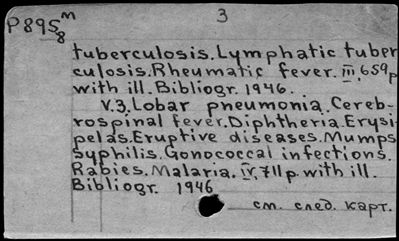 P895m
8
3
tuberculosis. Lymphatic tuber
culosis. Rheumatic fever. III, 659p
with ill. Bibliogr. 1946.
V.3. Lobar pneumonia. Cereb-
rospinal fever. Diphtheria. Erysi-
pelas. Eruptive diseases. Mumps
Syphilis. Gonococcal infections.
Rabies. Malaria. IV, 711 p. with ill.
Bibliogr. 1946
см. след. карт.